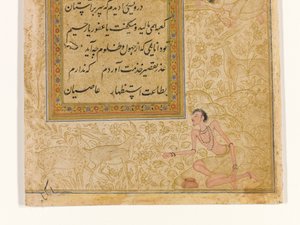 درویشی را دیدم که سر بر آستان
کعبه همی مالید و میگفت یا غفور یا رحیم
که از جهول و ظلوم چه آید
عذر تقصیر خدمت آوردم که ندارم
بطاعت استظهار عاصیان